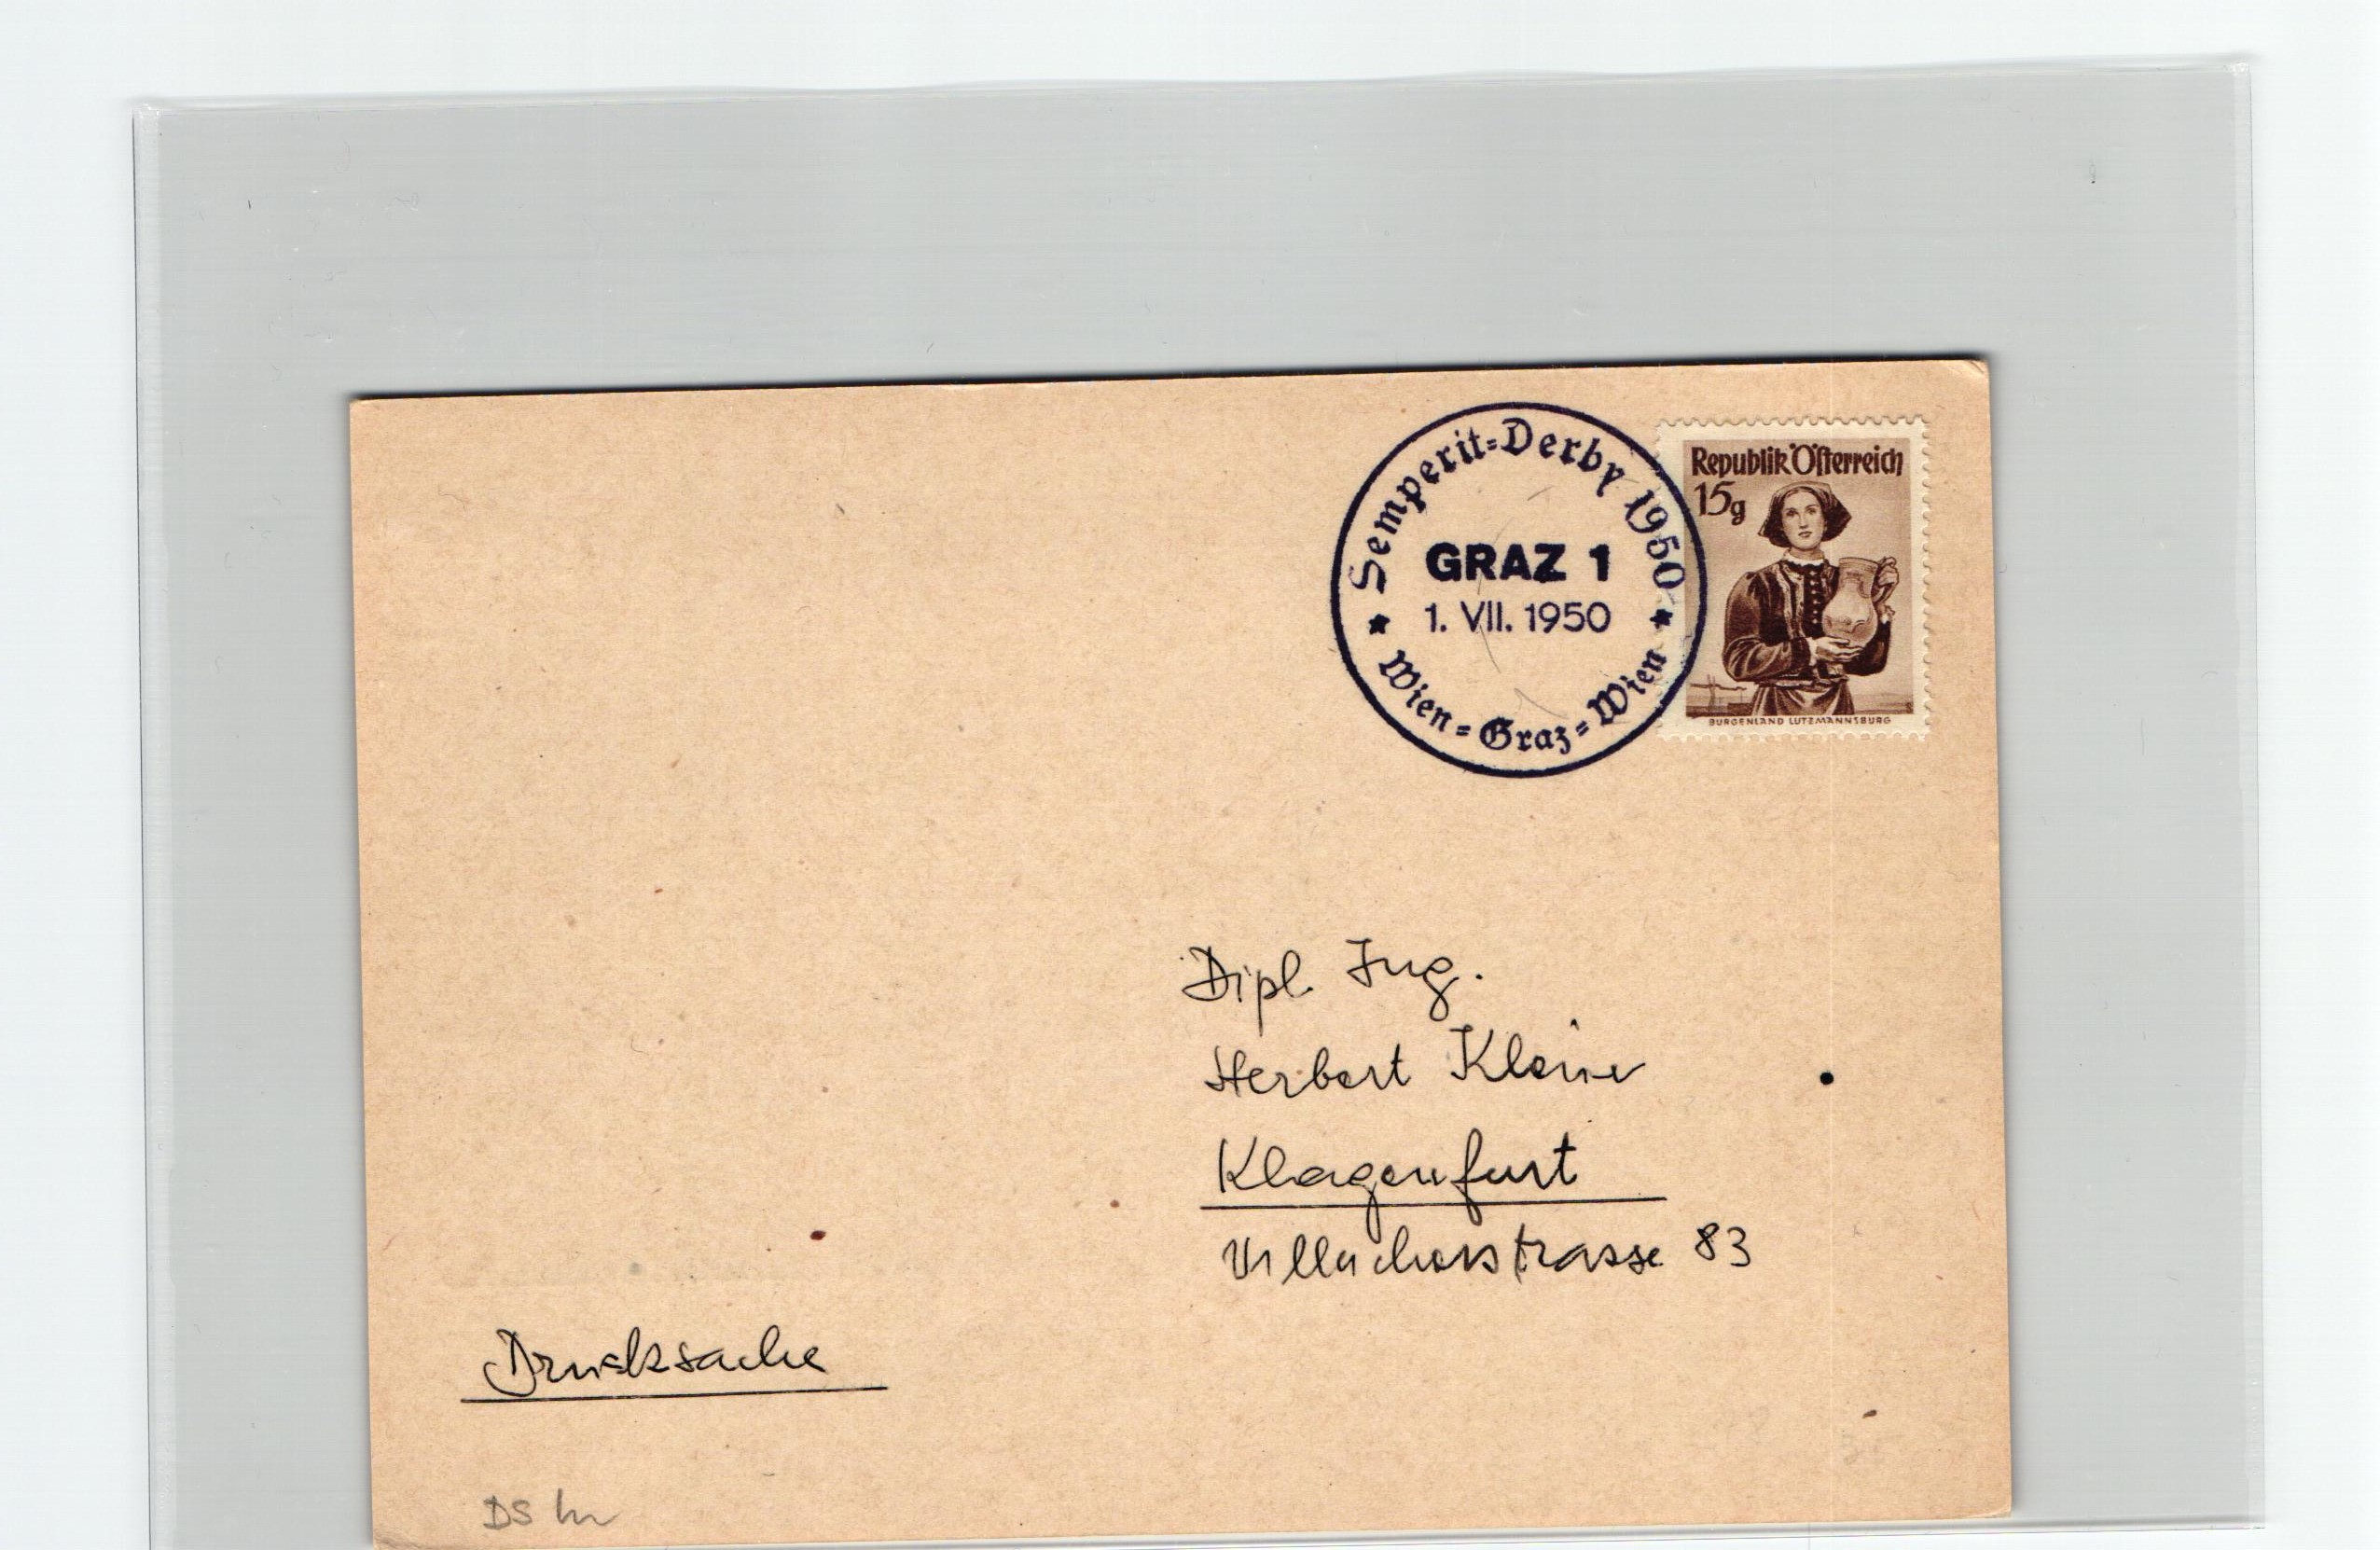 Semperit=Derby 1950
GRAZ 1
1. VII. 1950
Wien=Graz=Wien
Republik Österreich
15g
BURGENLAND LUTZMANNSBURG
Dipl. Ing.
Herbert
Klagenfurt
Villacherstrasse 83
Drucksache
DS